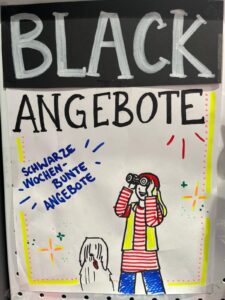 BLACK
ANGEBOTE
SCHWARZE
WOCHEN-
BUNTE
ANGEBOTE